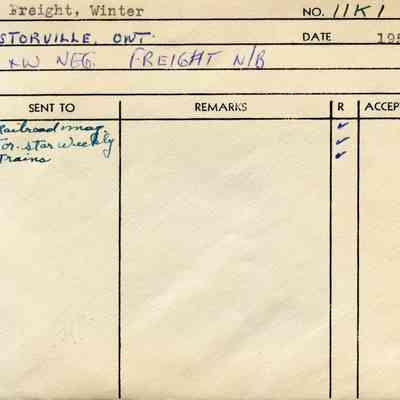 Freight, Winter NO. 11K1
STORVILLE, ONT. DATE 195
NEG. FREIGHT N/B
SENT TO REMARKS R ACCEP
Railroad mag. ✓
Tor. Star Weekly ✓
Trains ✓